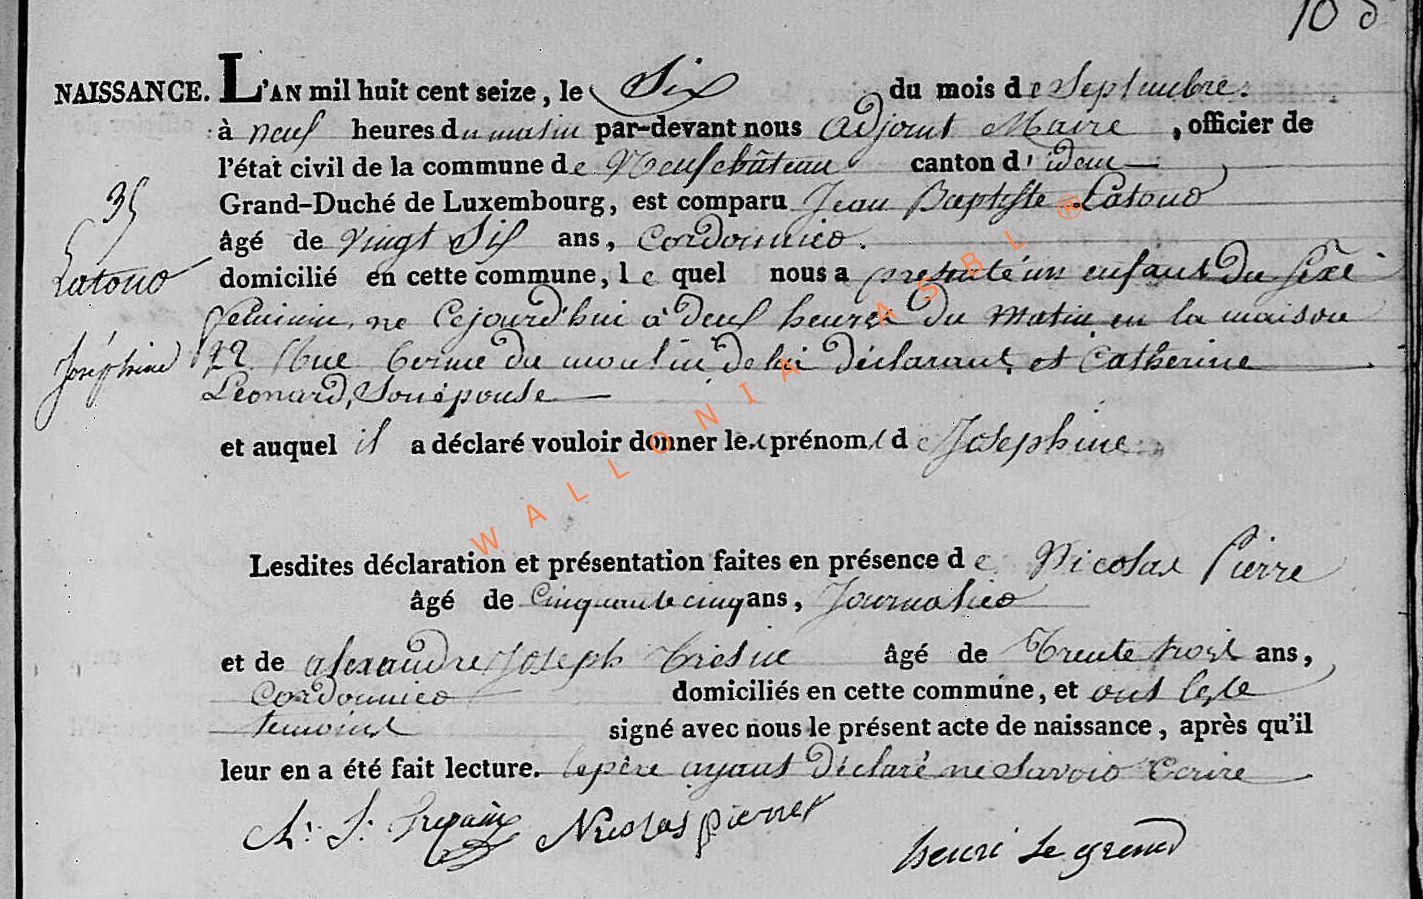 NAISSANCE. L'AN mil huit cent seize, le Six du mois de Septembre.
à neuf heures du matin par-devant nous adjoint Maire, officier de
l'état civil de la commune de Neufchâteau canton d' idem
35
Grand-Duché de Luxembourg, est comparu Jean Baptiste Latour
âgé de vingt Six ans, Cordonnier.
Latour
domicilié en cette commune, le quel nous a presenté un enfant du sexe
feminin, né Cejourd'hui à deux heures du matin en la maison
Joséphine
22 Rue du moulin de lui déclarant, et Catherine
Léonard, Son épouse
et auquel il a déclaré vouloir donner les prénoms de Josephine
Lesdites déclaration et présentation faites en présence de Nicolas Pierre
âgé de Cinquante cinq ans, Journalier
et de alexandre Joseph âgé de Trente trois ans,
Cordonnier domiciliés en cette commune, et ont les
temoins signé avec nous le présent acte de naissance, après qu'il
leur en a été fait lecture. le père ayant déclaré ne Savoir Ecrire
Nicolas pierret
henri Le grand
WALLONIA ASBL ®